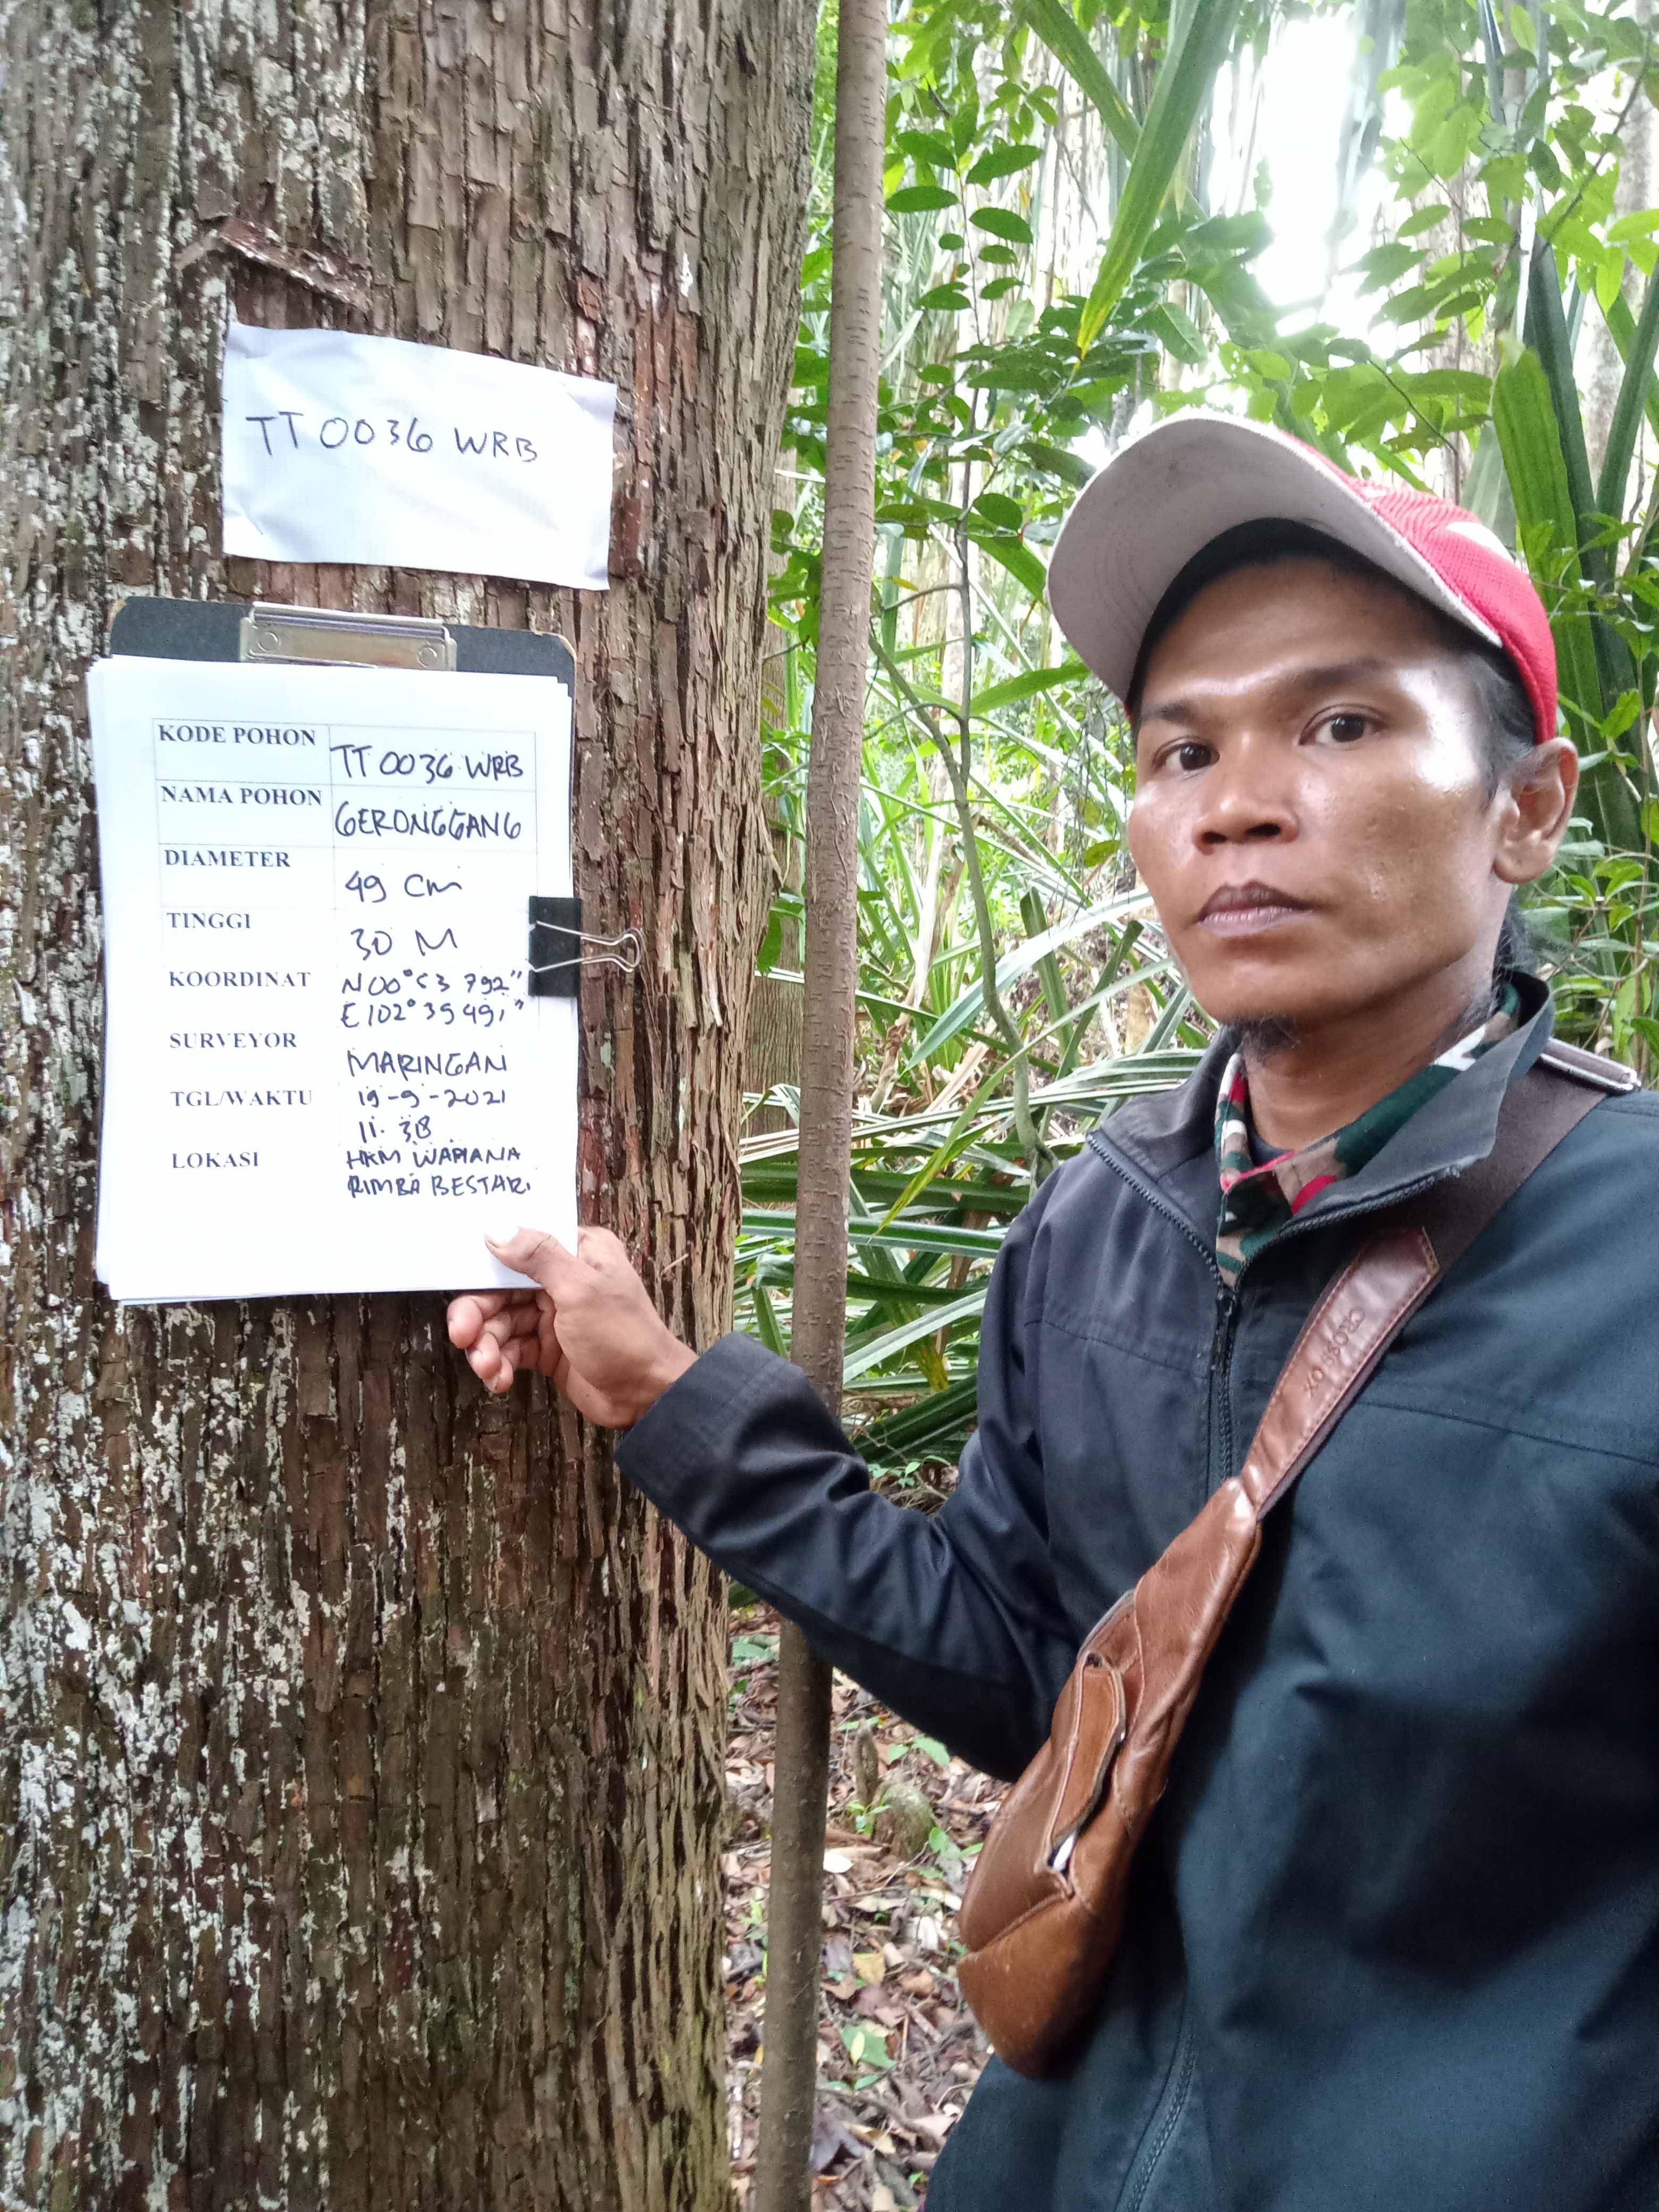 TT 0036 WRB
KODE POHON TT 0036 WRB
NAMA POHON GERONGGANG
DIAMETER 49 CM
TINGGI 30 M
KOORDINAT N 00° 53 792"
E 102° 39 491"
SURVEYOR MARINGAN
TGL/WAKTU 19-9-2021
11.38
LOKASI HKM WAPIANA
RIMBA BESTARI
CROSS OX